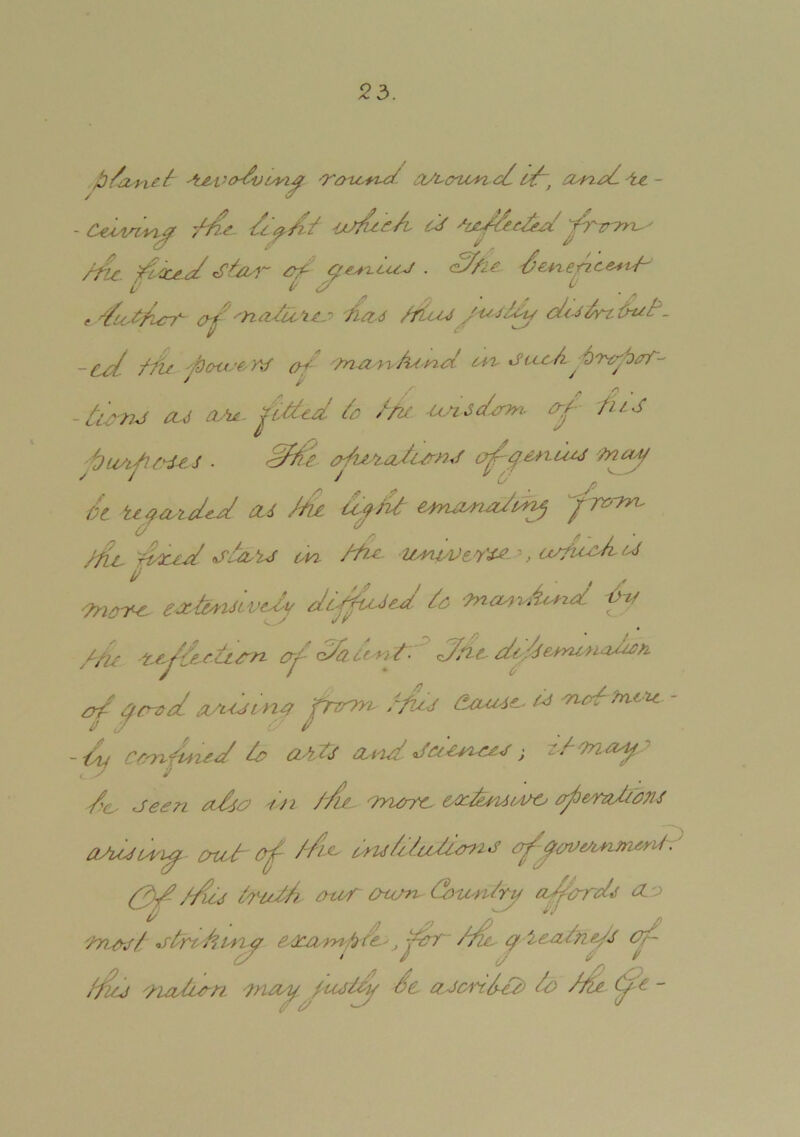 23.
planet revolving round around it, and re -
- ceiving the light which is reflected from
the fixed star of genius. The beneficent
Author of nature has thus justly distribut-
-ed the powers of mankind in such propor-
-tions as are fitted to the wisdom of his
purposes. The operations of genius may
be regarded as the light emanating from
the fixed stars in the universe, which is
more extensively diffused to mankind by
the reflection of Talent. The dissemination
of good arising from this Cause is not mere -
-ly confined to arts and Sciences; it may
be seen also in the more extensive operations
arising out of the institutions of government.
Of this truth our own Country affords a
most striking example, for the greatness of
this nation may justly be ascribed to the Ge -